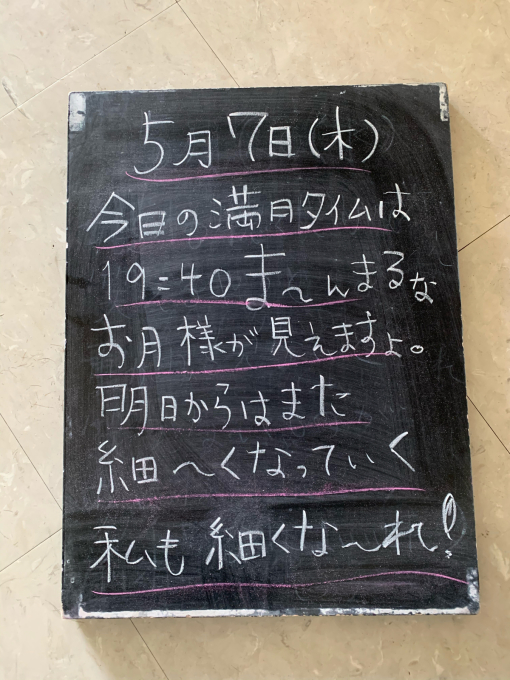 5月7日(木)
今日の満月タイムは
19:40 ま〜んまるな
お月様が見えますょ。
明日からはまた
細〜くなっていく
私も細くな〜れ!